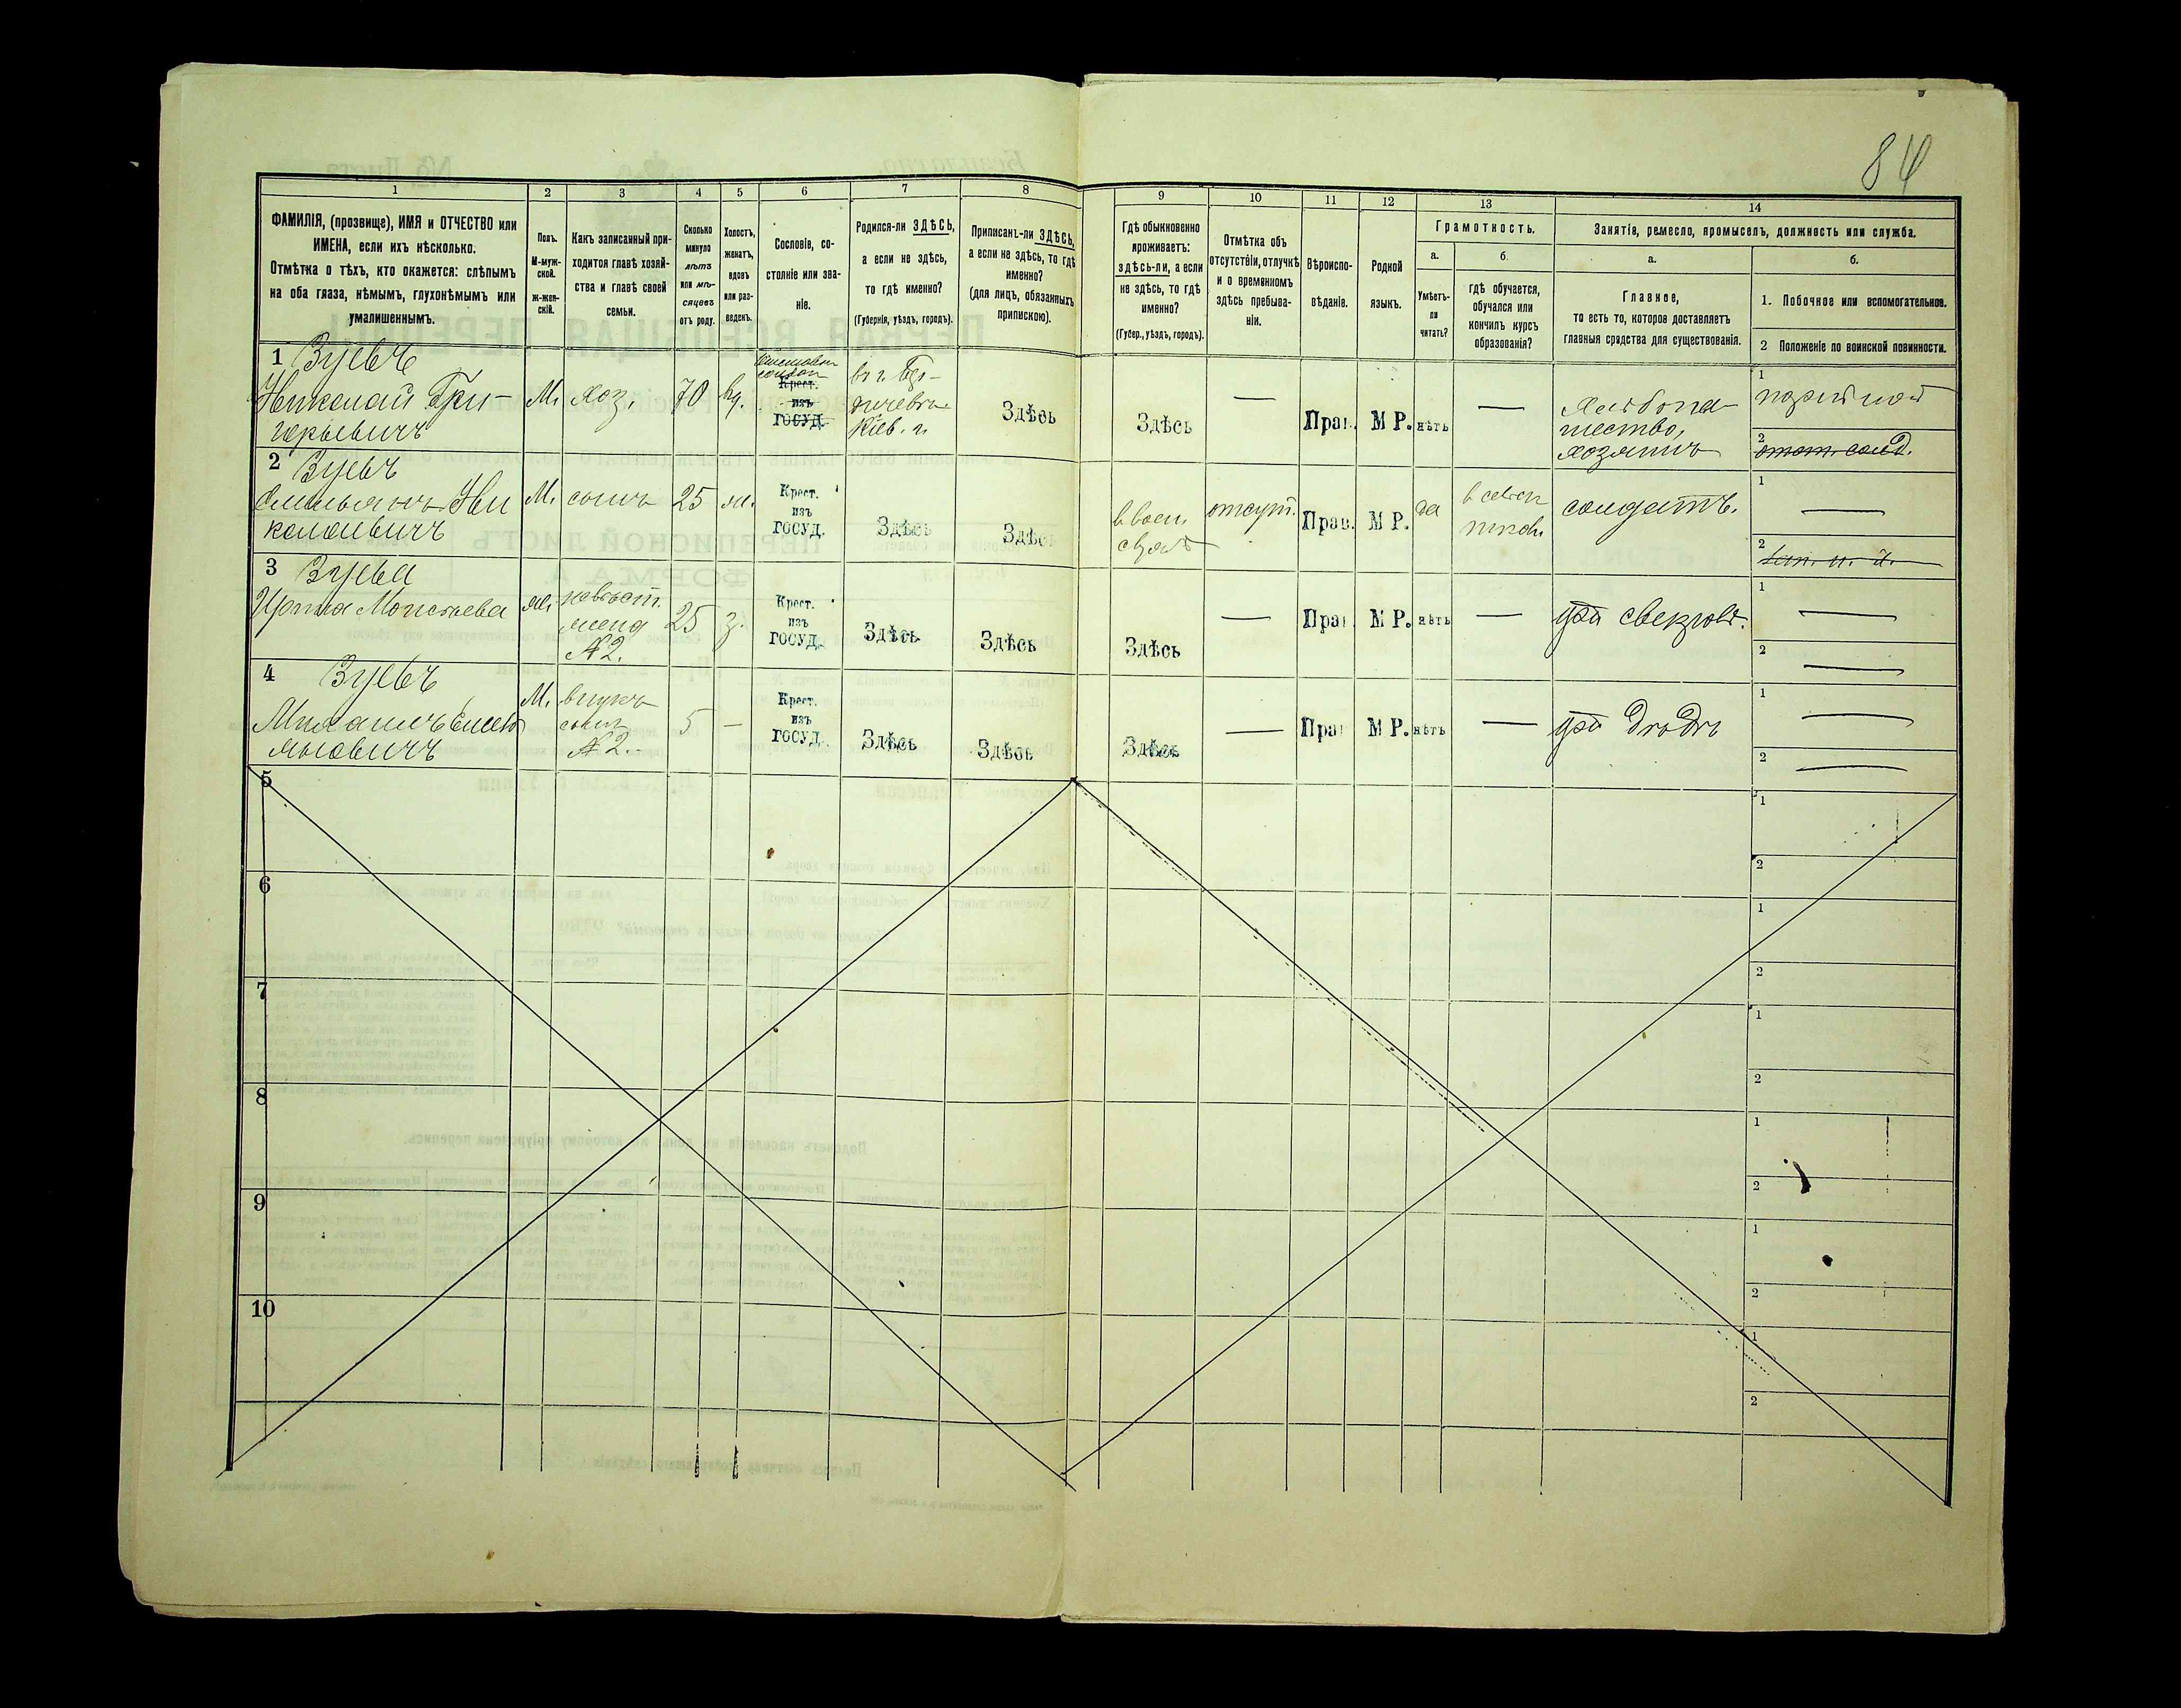 84
1 2 3 4 5 6 7 8 9 10 11 12 13 14
ФАМИЛІЯ, (прозвище), ИМЯ и ОТЧЕСТВО или
ИМЕНА, если ихъ нѣсколько.
Отмѣтка о тѣхъ, кто окажется: слѣпымъ
на оба глаза, нѣмымъ, глухонѣмымъ или
умалишеннымъ.
Полъ.
М-муж-
ской.
ж-жен-
скій.
Какъ записанный при-
ходится главѣ хозяй-
ства и главѣ своей
семьи.
Сколько
минуло
лѣтъ
или мѣ-
сяцевъ
отъ роду.
Холостъ,
женатъ,
вдовъ
или раз-
веденъ.
Сословіе, со-
стояніе или зва-
ніе.
Родился-ли ЗДѢСЬ,
а если не здѣсь,
то гдѣ именно?
(Губернія, уѣздъ, городъ).
Приписанъ-ли ЗДѢСЬ,
а если не здѣсь, то гдѣ
именно?
(для лицъ, обязанныхъ
припискою).
Гдѣ обыкновенно
проживаетъ:
здѣсь-ли, а если
не здѣсь, то гдѣ
именно?
(Губер., уѣздъ, городъ).
Отмѣтка объ
отсутствіи, отлучкѣ
и о временномъ
здѣсь пребыва-
ніи.
Вѣроиспо-
вѣданіе.
Родной
языкъ.
Грамотность.
а.
Умѣетъ-
ли
читать?
б.
гдѣ обучается,
обучался или
кончилъ курсъ
образованія?
Занятіе, ремесло, промыселъ, должность или служба.
а.
Главное,
то есть то, которое доставляетъ
главныя средства для существованія.
б.
1. Побочное или вспомогательное.
2 Положеніе по воинской повинности.
1 Зуевъ
Николай Гри-
горьевичъ
М. хоз. 70 вд.
Крест.
изъ
госуд.
Кіев. г.
Здѣсь
Здѣсь
—
Прав.
М Р.
нѣтъ
—
хлѣбопа-
шество,
хозяинъ
1
2
отст. солд.
2 Зуевъ
Емельянъ Ни
колаевичъ
М. сынъ 25 ж.
Крест.
изъ
госуд.
Здѣсь
Здѣсь
в воен.
отсут.
Прав.
М Р.
да
солдатъ.
1 —
2
3 Зуева
Ирина Моисѣева
ж. невѣст.
жена
№2.
25 з.
Крест.
изъ
госуд.
Здѣсь
Здѣсь
Здѣсь
—
Прав.
М Р.
нѣтъ
—
при свекрѣ.
1 —
2 —
4 Зуевъ
Михаилъ Емель
яновичъ
М. внукъ
сынъ
№2.-
5 —
Крест.
изъ
госуд.
Здѣсь
Здѣсь
Здѣсь
—
Прав
М Р.
нѣтъ
—
при дѣдѣ
1 —
2 —
5
1
2
6
1
2
7
1
2
8
1
2
9
1
2
10
1
2